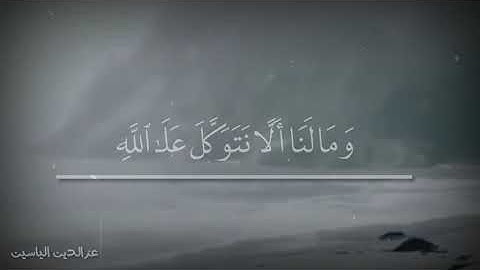 وَمَا لَنَا أَلَّا نَتَوَكَّلَ عَلَى ٱللَّهِ
عز الدين الياسين